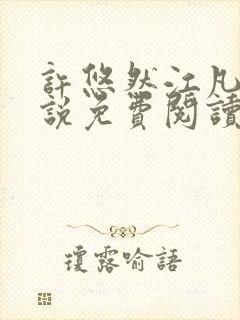 許悠然江凡
說免費閱讀
瓊露喻語